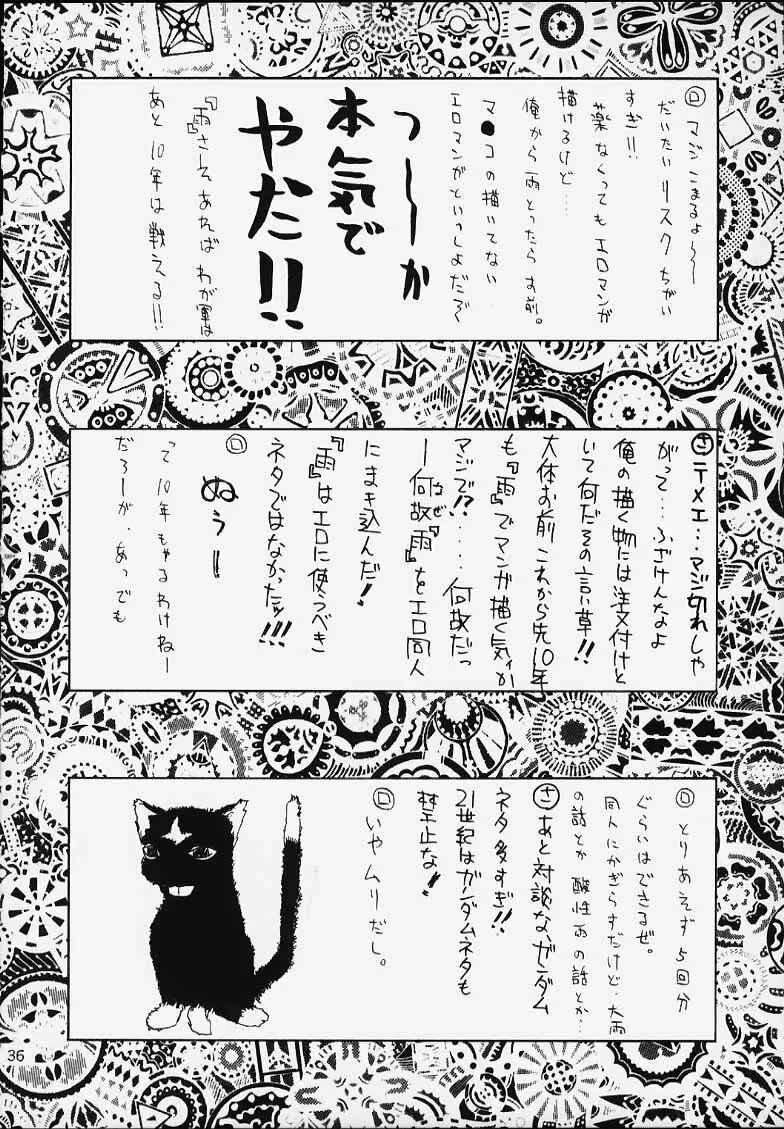 ロ マジこまるよ〜〜
だいたいリスクちがい
すぎ!!
薬なくってもエロマンガ
描けるけど…
俺から雨とったらお前。
マ●コの描いてない
エロマンガといっしょだぞ〜
つ〜〜か
本気で
やだ!!
『雨』さえあればわが軍は
あと10年は戦える!!
さ テメエ…マジ切れしゃ
がって…ふざけんなよ
俺の描く物には注文付けと
いて何だその言い草!!
大体お前これから先10年
も『雨』でマンガ描く気か
マジで!?....何故だっ
ー何故『雨』をエロ同人
なぜ
にまき込んだ!
『雨』はエロに使うべき
ネタではなかったッ!!!
ロ ぬぅー
って10年もやるわけねー
だろーが、あっても
ロ とりあえず5回分
ぐらいはできるぜ。
同人にかぎらずだけど、大雨
の話とか酸性雨の話とか…
さ あと対談な、ガンダム
ネタ多すぎ!!
21世紀はガンダムネタも
禁止な!!
ロ いやムリだし。
36